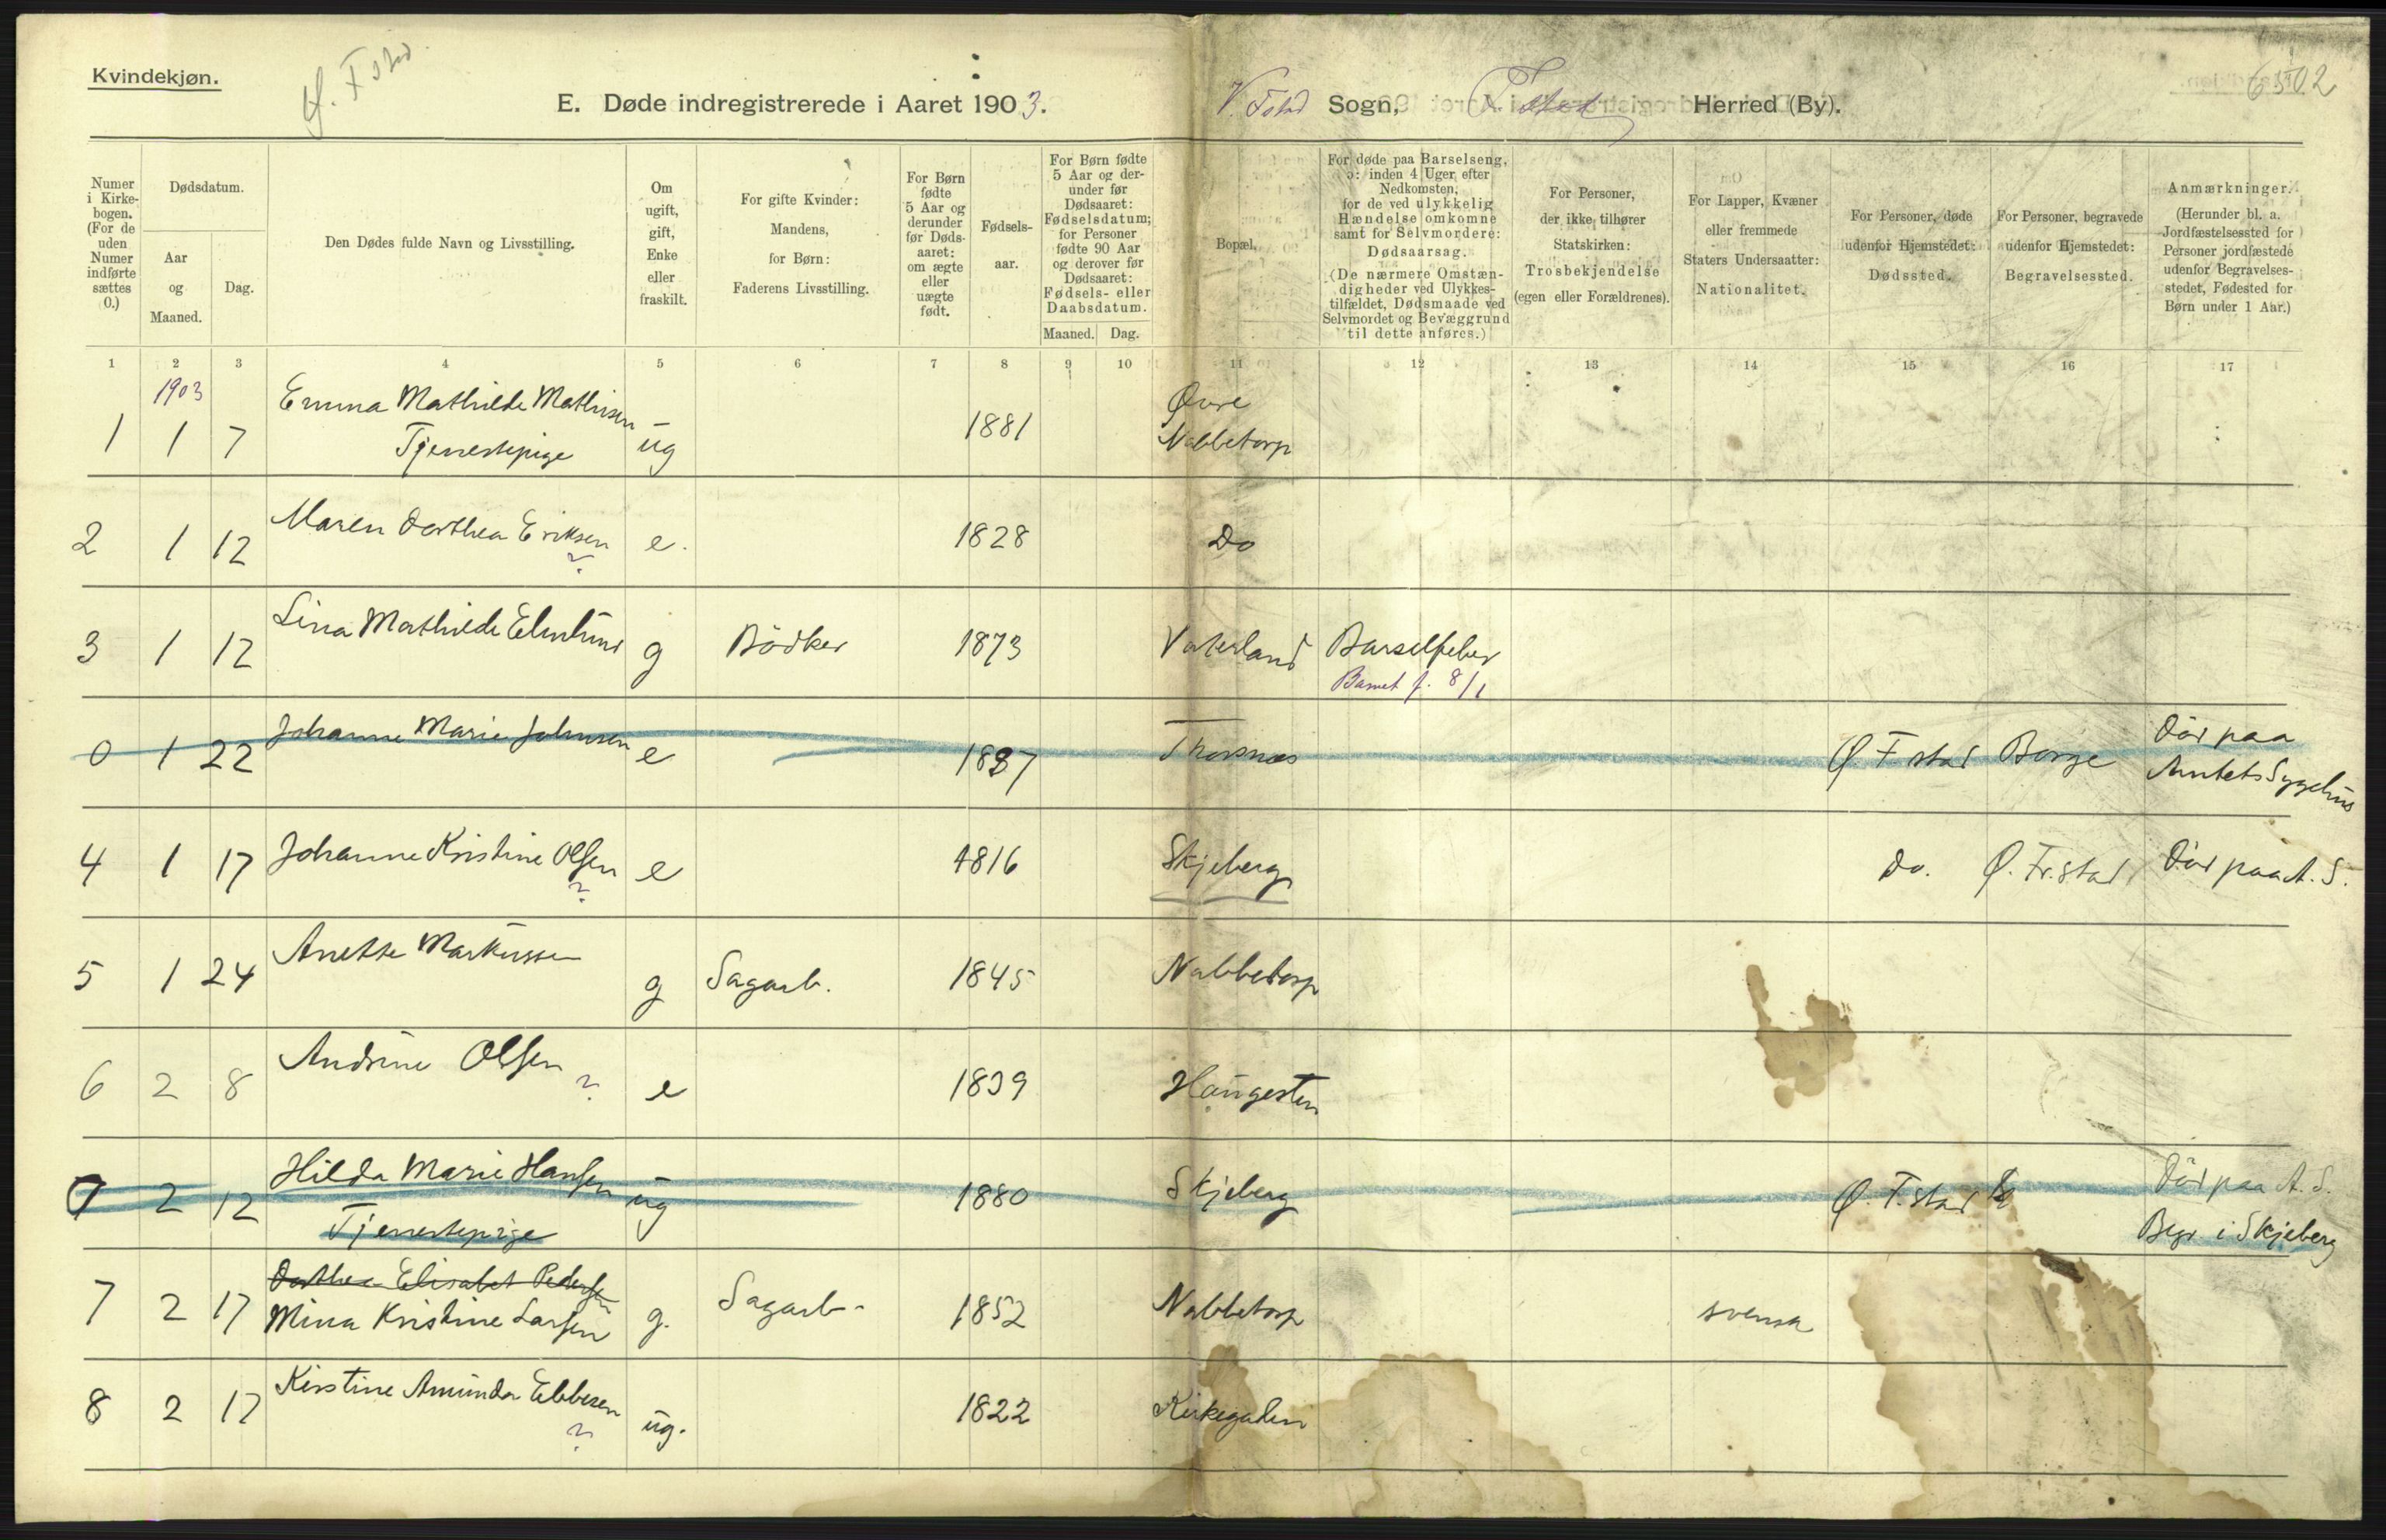 Kvindekjøn.
Ø. Fstad
E. Døde indregistrerede i Aaret 1903.
V. Fstad Sogn, F.stad Herred (By).
6502
Numer i Kirkebogen. (For de uden Numer indførte sættes 0.)
Dødsdatum.
Aar og Maaned.
Dag.
Den Dødes fulde Navn og Livsstilling.
Om ugift, gift, Enke eller fraskilt.
For gifte Kvinder: Mandens, for Børn: Faderens Livsstilling.
For Børn fødte 5 Aar og derunder før Dødsaaret: om ægte eller uægte født.
Fødselsaar.
For Børn fødte 5 Aar og derunder før Dødsaaret: Fødselsdatum; for Personer fødte 90 Aar og derover før Dødsaaret: Fødsels- eller Daabsdatum.
Maaned. Dag.
Bopæl.
For døde paa Barselseng, ɔ: inden 4 Uger efter Nedkomsten, for de ved ulykkelig Hændelse omkomne samt for Selvmordere: Dødsaarsag.
(De nærmere Omstændigheder ved Ulykkestilfældet, Dødsmaade ved Selvmordet og Bevæggrund til dette anføres.)
For Personer, der ikke tilhører Statskirken: Trosbekjendelse (egen eller Forældrenes).
For Lapper, Kvæner eller fremmede Staters Undersaatter: Nationalitet.
For Personer, døde udenfor Hjemstedet: Dødssted.
For Personer, begravede udenfor Hjemstedet: Begravelsessted.
Anmærkninger. (Herunder bl. a. Jordfæstelsessted for Personer jordfæstede udenfor Begravelsesstedet, Fødested for Børn under 1 Aar.)
1 2 3 4 5 6 7 8 9 10 11 12 13 14 15 16 17
1903
1 1 7 Emma Mathilde Mathisen ug 1881 Øvre
Tjenestepige Nabbetorp
2 1 12 Maren Dorthea Eriksen ? e. 1828 Do
3 1 12 Lina Mathilde Elnlund g Bödker 1873 Vaterland Barselfeber
Barnet f. 8/1
0 1 22 Johanne Marie Johnsen e 1827 Thorsnæs Ø. F.stad Borge Död paa
Amtets Sygehus
4 1 17 Johanne Kristine Olsen ? e 1816 Skjeberg Do. Ø. Fr.stad Död paa A. S.
5 1 24 Anette Markussen g Sagarb. 1845 Nabbetorp
6 2 8 Andrine Olsen ? e 1839 Haugesten
7 2 12 Hilda Marie Hansen ug 1880 Skjeberg Ø. F.stad Död paa A. S.
Tjenestepige Begr. i Skjeberg
Dorthea Elisabet Pedersen
7 2 17 Mina Kristine Larsen g. Sagarb. 1852 Nabbetorp svensk
8 2 17 Kirstine Amunda Ebbesen ? ug. 1822 Kirkegaden